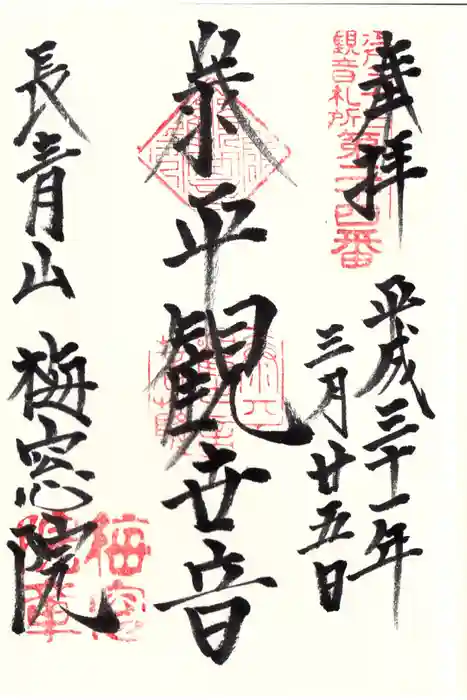 奉拝
江戸三十三
観音札所
第二十四番
平成三十一年
三月廿五日
泰平観世音
長青山 梅窓院
梅窓
院章